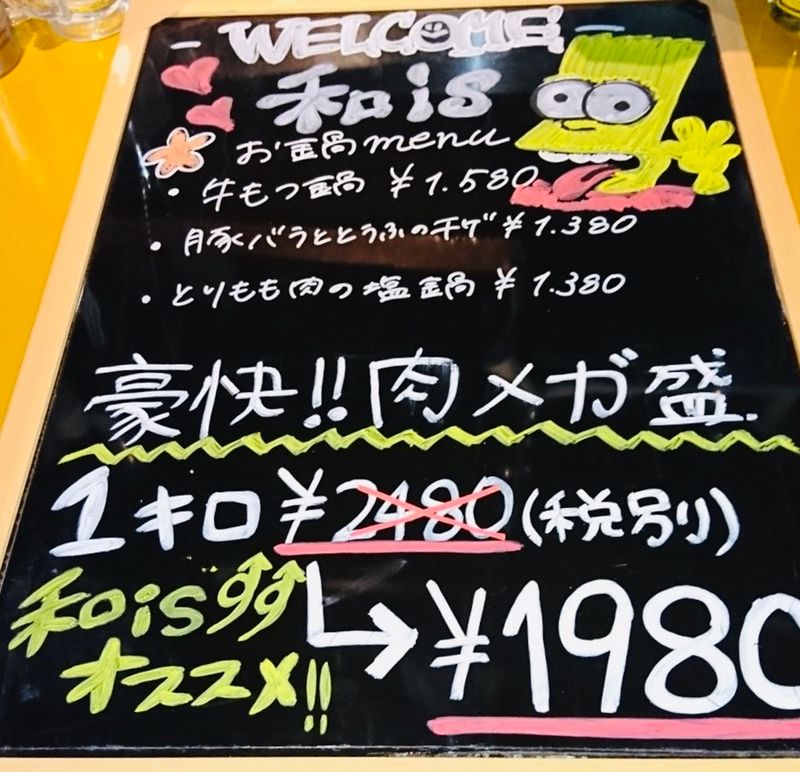 WELCOME
和is
お鍋menu
・牛もつ鍋 ¥1.580
・豚バラととうふのチゲ ¥1.380
・とりもも肉の塩鍋 ¥1.380
豪快!!肉メガ盛
1キロ ¥2480(税別)
和is
オススメ!!
→¥1980